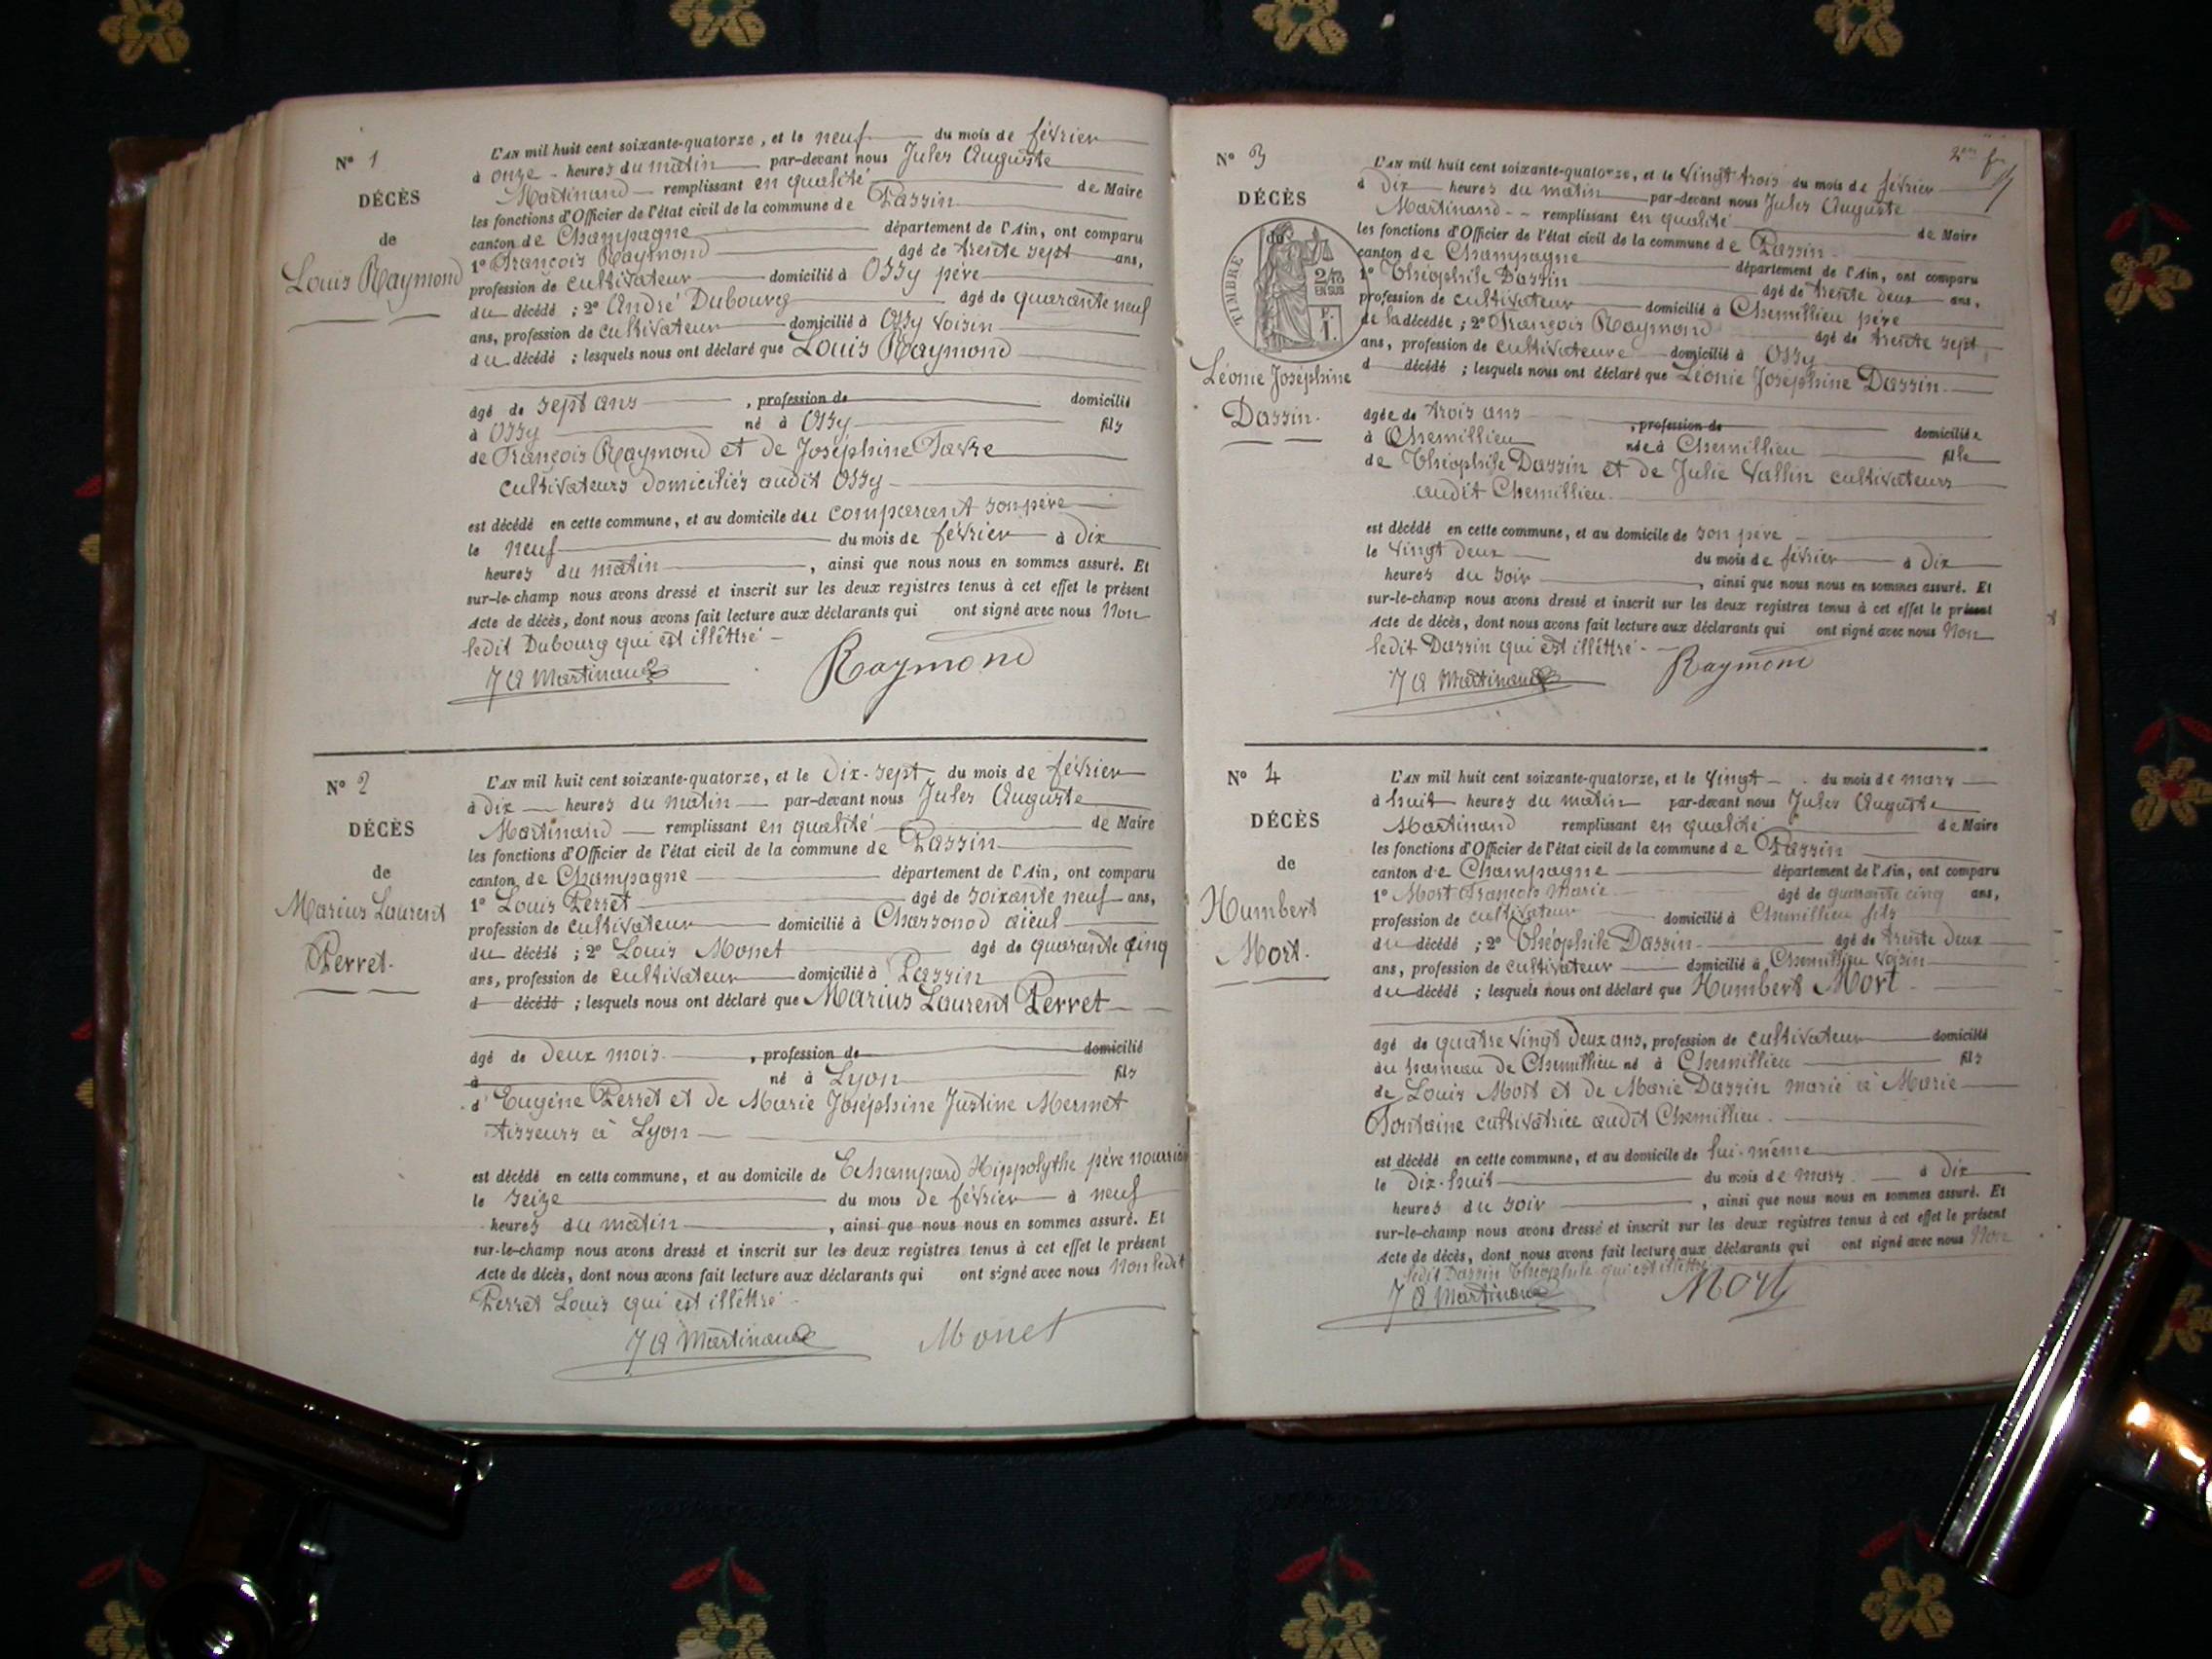 N° 1
DÉCÈS
de
Louis Raymond
L'AN mil huit cent soixante-quatorze, et le neuf du mois de février
à onze heures du matin par-devant nous Jules Auguste
Martinand remplissant en qualité de Maire
les fonctions d'Officier de l'état civil de la commune de Passin
canton de Champagne département de l'Ain, ont comparu
1° François Raymond âgé de trente sept ans,
profession de cultivateur domicilié à Ossy père
du décédé ; 2° André Dubourg âgé de quarante neuf
ans, profession de cultivateur domicilié à Ossy voisin
du décédé ; lesquels nous ont déclaré que Louis Raymond
âgé de sept ans , profession de domicilié
à Ossy né à Ossy fils
de François Raymond et de Joséphine Favre
cultivateurs domiciliés audit Ossy
est décédé en cette commune, et au domicile du comparant son père
le neuf du mois de février à dix
heures du matin , ainsi que nous nous en sommes assuré. Et
sur-le-champ nous avons dressé et inscrit sur les deux registres tenus à cet effet le présent
Acte de décès, dont nous avons fait lecture aux déclarants qui ont signé avec nous Non
ledit Dubourg qui est illéttré
J A Martinand Raymond
N° 2
DÉCÈS
de
Marius Laurent
Perret.
L'AN mil huit cent soixante-quatorze, et le Dix-sept du mois de février
à dix heures du matin par-devant nous Jules Auguste
Martinand remplissant en qualité de Maire
les fonctions d'Officier de l'état civil de la commune de Passin
canton de Champagne département de l'Ain, ont comparu
1° Louis Perret âgé de soixante neuf ans,
profession de cultivateur domicilié à Chassonod aïeul
du décédé ; 2° Louis Monet âgé de quarante cinq
ans, profession de cultivateur domicilié à Passin
d décédé ; lesquels nous ont déclaré que Marius Laurent Perret
âgé de deux mois , profession de domicilié
à né à Lyon fils
d'Eugène Perret et de Marie Joséphine Justine Mermet
tisseurs à Lyon
est décédé en cette commune, et au domicile de Echampard Hippolythe père nourricier
le seize du mois de février à neuf
heures du matin , ainsi que nous nous en sommes assuré. Et
sur-le-champ nous avons dressé et inscrit sur les deux registres tenus à cet effet le présent
Acte de décès, dont nous avons fait lecture aux déclarants qui ont signé avec nous Non ledit
Perret Louis qui est illéttré
J A Martinand Monet
N° 3
DÉCÈS
de
TIMBRE
2/10
EN SUS
F.
1.
Léonie Joséphine
Dassin.
L'AN mil huit cent soixante-quatorze, et le vingt trois du mois de février
à Dix heures du matin par-devant nous Jules Auguste
Martinand remplissant en qualité de Maire
les fonctions d'Officier de l'état civil de la commune de Passin
canton de Champagne département de l'Ain, ont comparu
1° Théophile Dassin âgé de trente deux ans,
profession de cultivateur domicilié à Chemillieu père
de la décédée ; 2° François Raymond âgé de trente sept
ans, profession de cultivateure domicilié à Ossy
d décédé ; lesquels nous ont déclaré que Léonie Joséphine Dassin
âgée de trois ans , profession de domiciliée
à Chemillieu née à Chemillieu fille
de Théophile Dassin et de Julie Vallin cultivateurs
audit Chemillieu.
est décédé en cette commune, et au domicile de son père
le vingt deux du mois de février à dix
heures du soir , ainsi que nous nous en sommes assuré. Et
sur-le-champ nous avons dressé et inscrit sur les deux registres tenus à cet effet le présent
Acte de décès, dont nous avons fait lecture aux déclarants qui ont signé avec nous Non
ledit Dassin qui est illéttré
J A Martinand Raymond
N° 4
DÉCÈS
de
Humbert
Mort.
L'AN mil huit cent soixante-quatorze, et le vingt du mois de mars
à huit heures du matin par-devant nous Jules Auguste
Martinand remplissant en qualité de Maire
les fonctions d'Officier de l'état civil de la commune de Passin
canton de Champagne département de l'Ain, ont comparu
1° Mort François Marie âgé de quarante cinq ans,
profession de cultivateur domicilié à Chemillieu fils
du décédé ; 2° Théophile Dassin âgé de trente deux
ans, profession de cultivateur domicilié à Chemillieu voisin
du décédé ; lesquels nous ont déclaré que Humbert Mort
âgé de quatre vingt deux ans, profession de cultivateur domicilié
au hameau de Chemillieu né à Chemillieu fils
de Louis Mort et de Marie Dassin marié à Marie
Fontaine cultivatrice audit Chemillieu.
est décédé en cette commune, et au domicile de lui-même
le dix-huit du mois de mars à dix
heures du soir , ainsi que nous nous en sommes assuré. Et
sur-le-champ nous avons dressé et inscrit sur les deux registres tenus à cet effet le présent
Acte de décès, dont nous avons fait lecture aux déclarants qui ont signé avec nous Non
ledit Dassin Théophile qui est illéttré
J A Martinand Mort